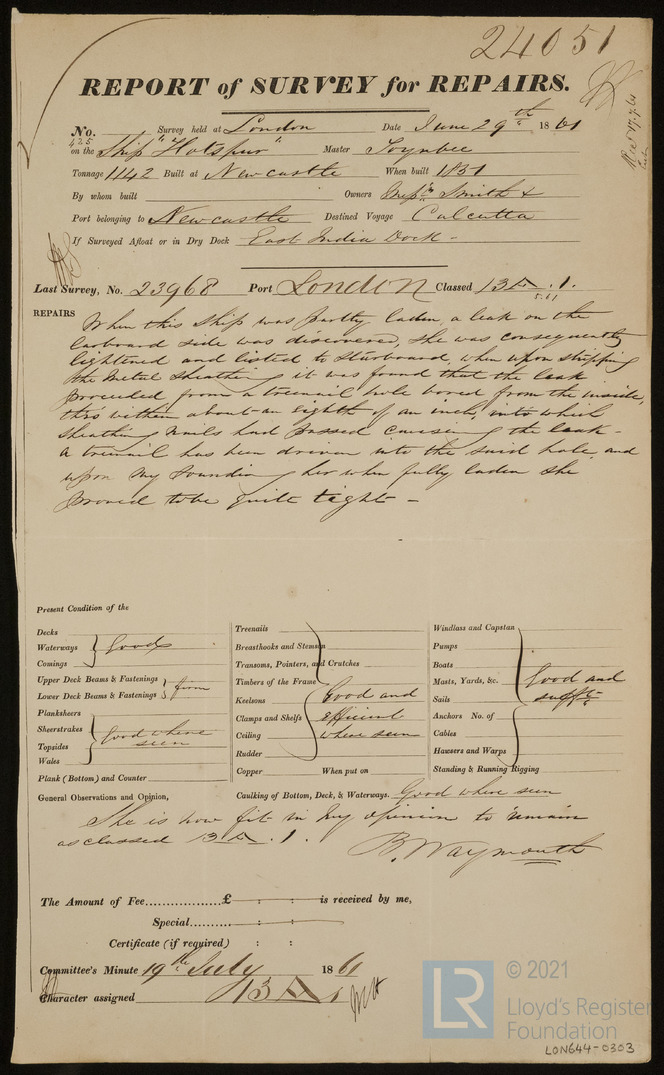 24051
REPORT of SURVEY for REPAIRS.
No. Survey held at London Date June 29th 1861
425
on the Ship "Hotspur" Master Toynbee
Tonnage 1142 Built at Newcastle When built 1851
By whom built Owners Smith &
Port belonging to Newcastle Destined Voyage Calcutta
If Surveyed Afloat or in Dry Dock East India Dock -
Last Survey, No. 23968 Port London Classed 13 A .1.
5.61
REPAIRS
When this Ship was partly laden, a leak on the
larboard side was discovered, she was consequently
lightened and listed to Starboard, when upon stripping
the metal sheathing it was found that the leak
proceeded from a treenail hole bored from the inside,
thro' within about an eighth of an inch, into which
sheathing nails had passed causing the leak -
a treenail has been driven into the said hole, and
upon my sounding her when fully laden she
proved to be quite tight -
Present Condition of the
Decks
Waterways
Comings
Good
Upper Deck Beams & Fastenings
Lower Deck Beams & Fastenings
firm
Planksheers
Sheerstrakes
Topsides
Wales
Good where
seen
Plank (Bottom) and Counter
Treenails
Breasthooks and Stemson
Transoms, Pointers, and Crutches
Timbers of the Frame
Keelsons
Clamps and Shelfs
Ceiling
Rudder
Good and
efficient
where seen
Copper When put on
Windlass and Capstan
Pumps
Boats
Masts, Yards, &c.
Sails
Anchors No. of
Cables
Hawsers and Warps
Standing & Running Rigging
Good and
sufft
General Observations and Opinion,
Caulking of Bottom, Deck, & Waterways. Good where seen
She is now fit in my opinion to remain
as classed 13 A .1.
B. Waymouth
The Amount of Fee..................£ : : is received by me,
Special.......... : :
Certificate (if required) : :
Committee's Minute 19th July 1861
Character assigned 13 A 1
LR
© 2021
Lloyd's Register
Foundation
LON644-0303